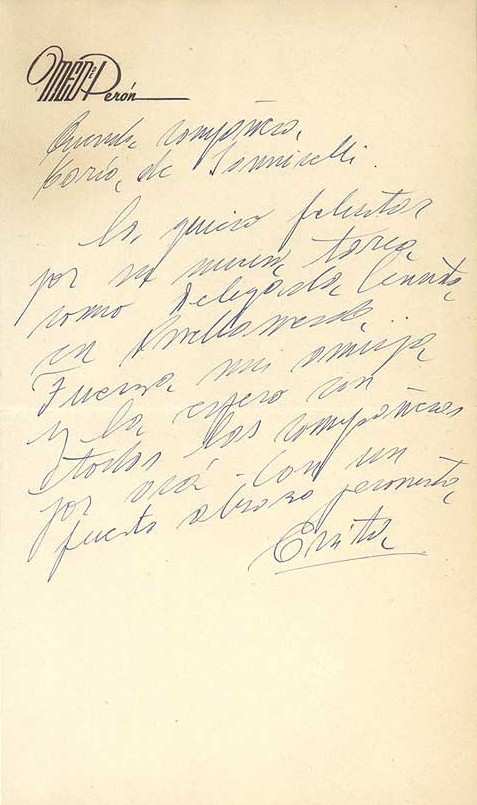 MED de Perón
Querida compañera,
María, de Iannicelli.
La, quiero felicitar
por su nueva, tarea,
como delegada, Censista,
en Avellaneda.
Fuerza, mi amiga
y la espero con
todas las compañeras
por acá. Con un
fuerte abrazo peronista,
Evita